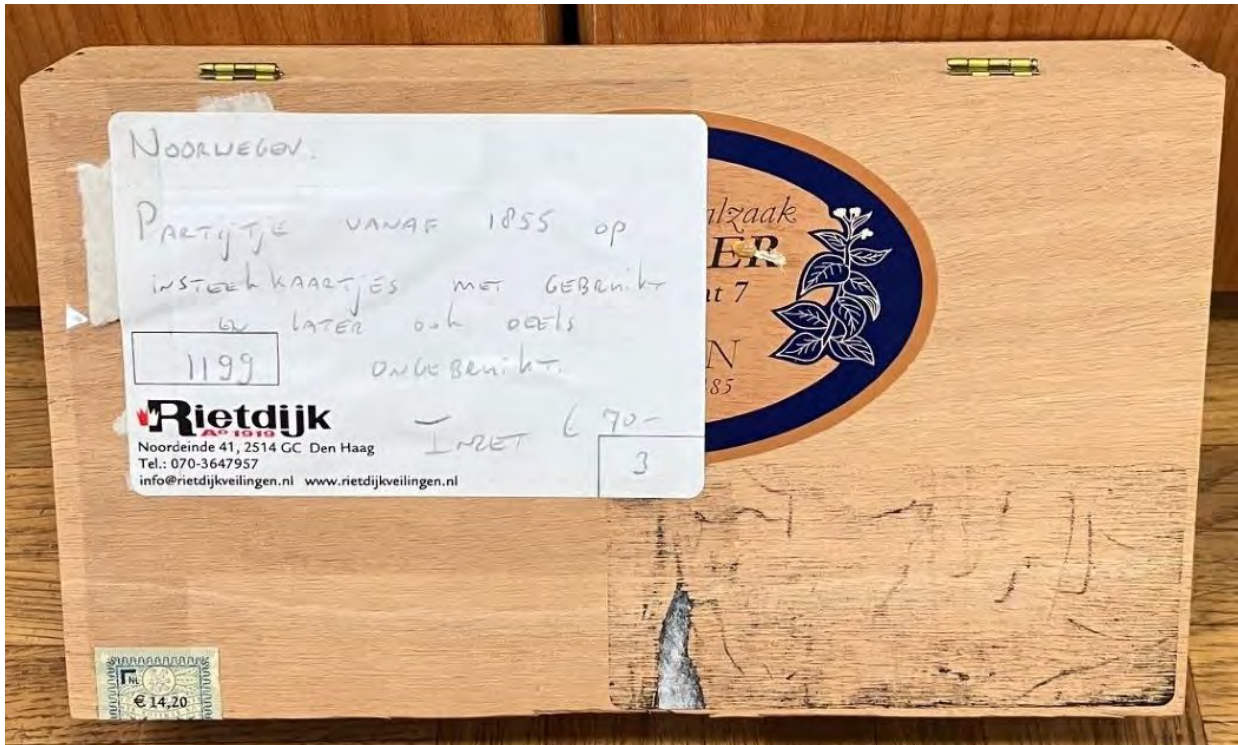 NOORWEGEN.
PARTIJTJE VANAF 1855 OP
INSTEEKKAARTJES MET GEBRUIKT
EN LATER OOK DEELS
1199 ONGEBRUIKT.
Rietdijk
Aº 1919
INZET € 70-
Noordeinde 41, 2514 GC Den Haag
Tel.: 070-3647957
3
info@rietdijkveilingen.nl www.rietdijkveilingen.nl
alzaak
ER
at 7
N
885
NL
€ 14,20